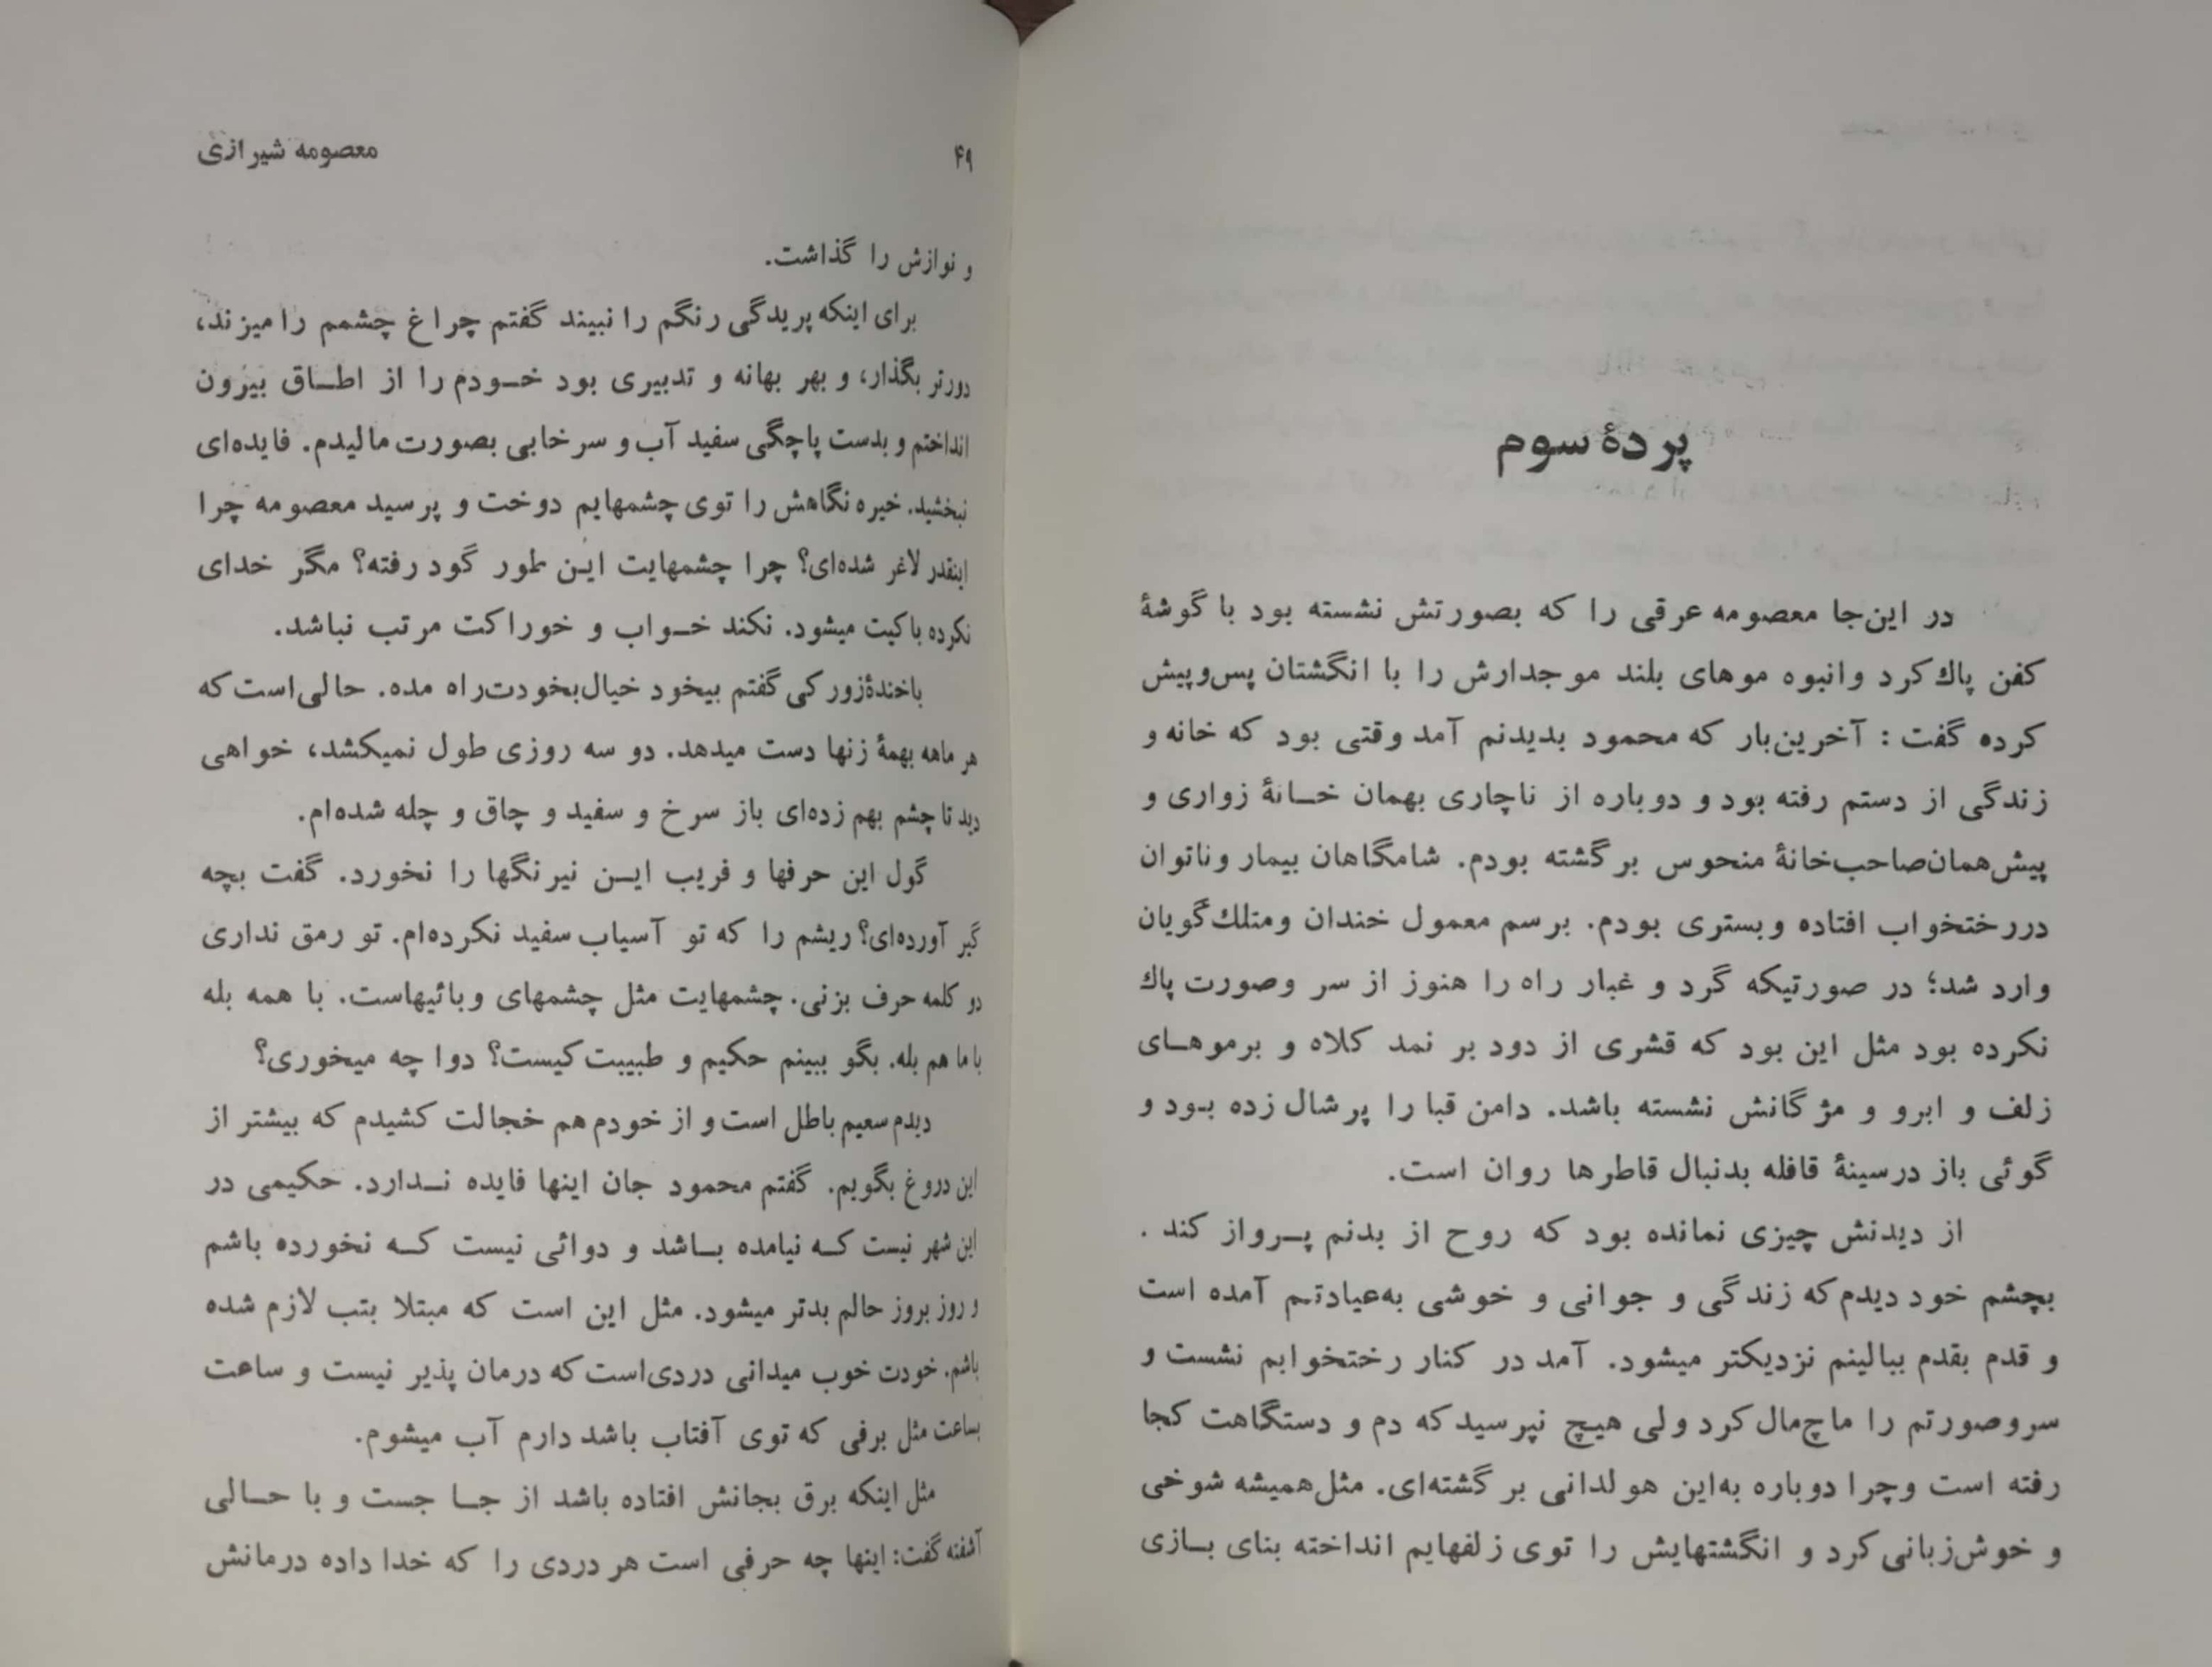 پردهٔ سوم
در این‌جا معصومه عرقی را که بصورتش نشسته بود با گوشهٔ
کفن پاك کرد وانبوه موهای بلند موجدارش را با انگشتان پس‌وپیش
کرده گفت : آخرین‌بار که محمود بدیدنم آمد وقتی بود که خانه و
زندگی از دستم رفته بود و دوباره از ناچاری بهمان خـانهٔ زواری و
پیش‌همان‌صاحب‌خانهٔ منحوس برگشته بودم. شامگاهان بیمار وناتوان
دررختخواب افتاده وبستری بودم. برسم معمول خندان ومتلك‌گویان
وارد شد؛ در صورتیکه گرد و غبار راه را هنوز از سر وصورت پاك
نکرده بود مثل این بود که قشری از دود بر نمد کلاه و برموهـای
زلف و ابرو و مژگانش نشسته باشد. دامن قبا را پرشال زده بـود و
گوئی باز درسینهٔ قافله بدنبال قاطرها روان است.
از دیدنش چیزی نمانده بود که روح از بدنم پـرواز کند .
بچشم خود دیدم که زندگی و جوانی و خوشی به‌عیادتـم آمده است
و قدم بقدم ببالینم نزدیکتر میشود. آمد در کنار رختخوابم نشست و
سروصورتم را ماچ‌مال کرد ولی هیـچ نپرسید که دم و دستگاهت کجا
رفته است وچرا دوباره به‌این هولدانی برگشته‌ای. مثل‌همیشه شوخی
و خوش‌زبانی کرد و انگشتهایش را توی زلفهایم انداخته بنای بـازی
۴۹
معصومه شیرازی
و نوازش را گذاشت.
برای اینکه پریدگی رنگم را نبیند گفتم چراغ چشمم را میزند،
دورتر بگذار، و بهر بهانه و تدبیری بود خـودم را از اطـاق بیرون
انداختم و بدست پاچگی سفید آب و سرخابی بصورت مالیدم. فایده‌ای
نبخشید. خیره نگاهش را توی چشمهایم دوخت و پرسید معصومه چرا
اینقدر لاغر شده‌ای؟ چرا چشمهایت ایـن طور گود رفته؟ مگر خدای
نکرده باکیت میشود. نکند خـواب و خوراکت مرتب نباشد.
باخندهٔ‌زورکی گفتم بیخود خیال‌بخودت‌راه مده. حالی‌است که
هر ماهه بهمهٔ زنها دست میدهد. دو سه روزی طول نمیکشد، خواهی
دید تا چشم بهم زده‌ای باز سرخ و سفید و چاق و چله شده‌ام.
گول این حرفها و فریب ایـن نیرنگها را نخورد. گفت بچه
گیر آورده‌ای؟ ریشم را که تو آسیاب سفید نکرده‌ام. تو رمق نداری
دو کلمه حرف بزنی. چشمهایت مثل چشمهای وبائیهاست. با همه بله
با ما هم بله. بگو ببینم حکیم و طبیبت کیست؟ دوا چه میخوری؟
دیدم سعیم باطل است و از خودم هم خجالت کشیدم که بیشتر از
این دروغ بگویم. گفتم محمود جان اینها فایده نـدارد. حکیمی در
این شهر نیست کـه نیامده بـاشد و دوائی نیست کـه نخورده باشم
و روز بروز حالم بدتر میشود. مثل این است که مبتلا بتب لازم شده
باشم. خودت خوب میدانی دردی‌است که درمان پذیر نیست و ساعت
بساعت مثل برفی که توی آفتاب باشد دارم آب میشوم.
مثل اینکه برق بجانش افتاده باشد از جـا جست و با حـالی
آشفته گفت: اینها چه حرفی است هر دردی را که خدا داده درمانش